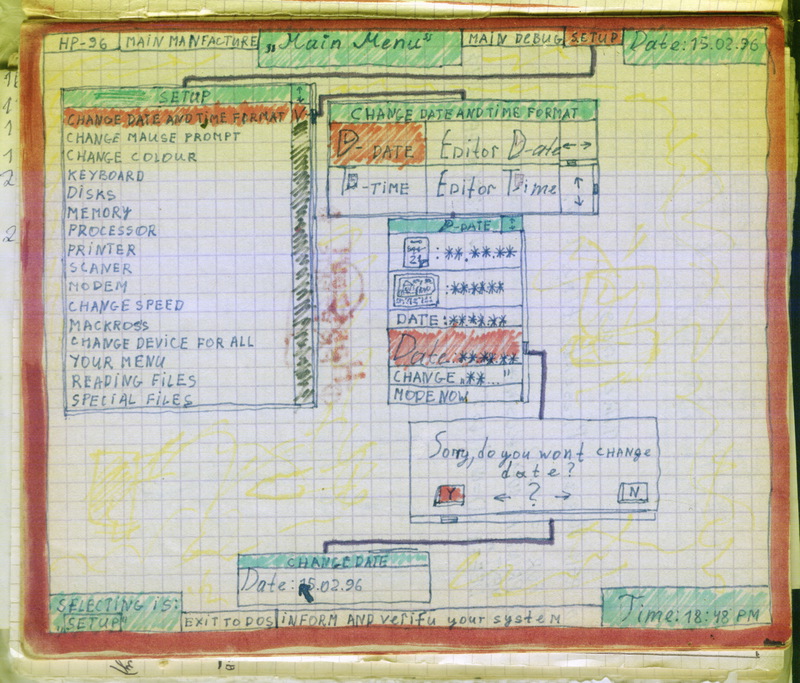 HP-96 MAIN MANFACTURE „Main Menu" MAIN DEBUG SETUP Date: 15.02.96
SETUP
CHANGE DATE AND TIME FORMAT
CHANGE MAUSE PROMPT
CHANGE COLOUR
KEYBOARD
DISKS
MEMORY
PROCESSOR
PRINTER
SCANER
MODEM
CHANGE SPEED
MACKROSS
CHANGE DEVICE FOR ALL
YOUR MENU
READING FILES
SPECIAL FILES
CHANGE DATE AND TIME FORMAT
D - DATE Editor D-ate
-TIME Editor Time
D-DATE
: **.**.**
: ******
DATE: **.**
Date: *****
CHANGE „**..."
MODE NOW
Sorry, do you wont CHANGE
date?
Y ← ? → N
CHANGE DATE
Date: 15.02.96
SELECTING IS:
„SETUP"
EXIT TO DOS INFORM AND verifu your system
Time: 18:48 PM